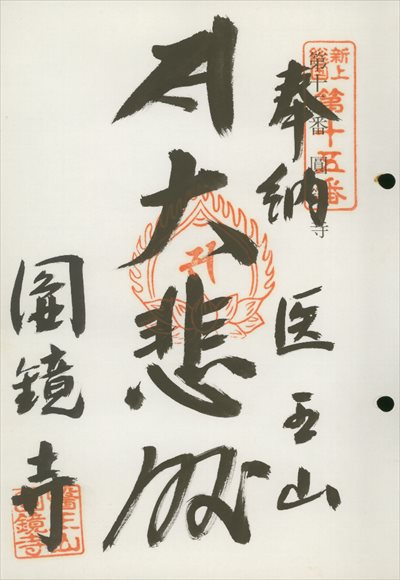 新上
総国
第十五番
第十五番 圓鏡寺
奉納 医王山
大悲殿
圓鏡寺
醫王山
圓鏡寺